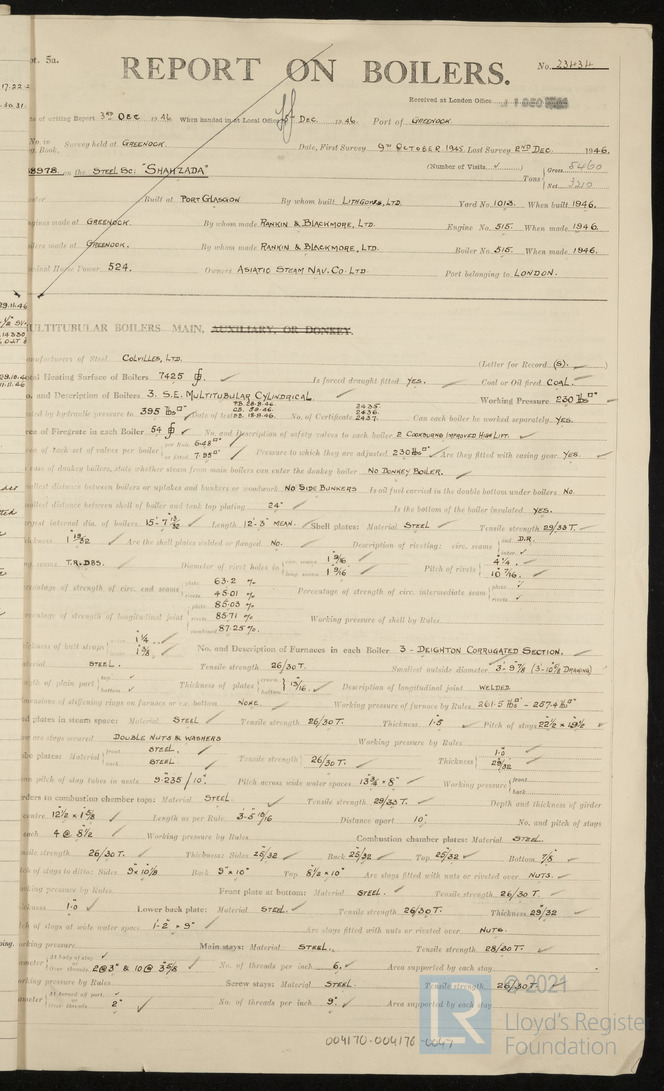 pt. 5a.
REPORT ON BOILERS.
No. 23434
17.22
Received at London Office 11 DEC
30.31
te of writing Report 3RD DEC 1946 When handed in at Local Office DEC. 1946. Port of GREENOCK
No. in
Book. Survey held at GREENOCK. Date, First Survey 9TH OCTOBER 1945. Last Survey 2ND DEC. 1946.
(Number of Visits ✓)
38978. on the STEEL SC: "SHAHZADA" Tons Gross 5460 Net 3210
Built at PORT GLASGOW By whom built LITHGOWS, LTD. Yard No. 1013. When built 1946.
gines made at GREENOCK. By whom made RANKIN & BLACKMORE, LTD. Engine No. 515. When made 1946.
ilers made at GREENOCK. By whom made RANKIN & BLACKMORE, LTD. Boiler No. 515. When made 1946.
minal Horse Power 524. Owners ASIATIC STEAM NAV. CO. LTD. Port belonging to LONDON.
ULTITUBULAR BOILERS MAIN, AUXILIARY, OR DONKEY.
anufacturers of Steel COLVILLES, LTD. (Letter for Record (S).)
tal Heating Surface of Boilers 7425 Is forced draught fitted YES. Coal or Oil fired COAL.
o. and Description of Boilers 3. S.E. MULTITUBULAR CYLINDRICAL Working Pressure 230 lbs
sted by hydraulic pressure to 395 lbs Date of test No. of Certificate 2435. 2436. 2437. Can each boiler be worked separately YES.
ea of Firegrate in each Boiler 54 No. and Description of safety valves to each boiler 2 COCKBURNS IMPROVED HIGH LIFT.
ea of each set of valves per boiler per Rule 6.48 as fitted 7.95 Pressure to which they are adjusted 230 lbs Are they fitted with easing gear YES.
case of donkey boilers, state whether steam from main boilers can enter the donkey boiler NO DONKEY BOILER.
allest distance between boilers or uptakes and bunkers or woodwork NO SIDE BUNKERS Is oil fuel carried in the double bottom under boilers NO.
allest distance between shell of boiler and tank top plating 24" Is the bottom of the boiler insulated YES.
rgest internal dia. of boilers 15'-7 13/32 Length 12'-3" MEAN. Shell plates: Material STEEL Tensile strength 29/33 T.
ickness 1 19/32 Are the shell plates welded or flanged NO. Description of riveting: circ. seams end D.R. inter.
ng. seams T.R.DBS. Diameter of rivet holes in circ. seams 1 9/16 long. seams 1 9/16 Pitch of rivets 4 1/4 10 7/16.
rcentage of strength of circ. end seams plate 63.2 % rivets 45.01 % Percentage of strength of circ. intermediate seam plate rivets
rcentage of strength of longitudinal joint plate 85.03 % rivets 85.71 % combined 87.25 %. Working pressure of shell by Rules
ickness of butt straps outer 1 1/4 inner 1 3/8 No. and Description of Furnaces in each Boiler 3 - DEIGHTON CORRUGATED SECTION.
terial STEEL. Tensile strength 26/30 T. Smallest outside diameter 3'-9 7/8 (3-10 5/8 DRAWING)
gth of plain part top bottom Thickness of plates crown bottom 19/16. Description of longitudinal joint WELDED
mensions of stiffening rings on furnace or c.c. bottom NONE. Working pressure of furnace by Rules 261.5 lbs - 257.4 lbs
d plates in steam space: Material STEEL Tensile strength 26/30 T. Thickness 1.5 Pitch of stays 22 1/2 x 19 1/2
w are stays secured DOUBLE NUTS & WASHERS Working pressure by Rules
be plates: Material front STEEL. back STEEL Tensile strength 26/30 T. Thickness 1.0 29/32
an pitch of stay tubes in nests 9.235 / 10" Pitch across wide water spaces 13 3/4 x 8" Working pressure front back
rders to combustion chamber tops: Material STEEL Tensile strength 29/33 T. Depth and thickness of girder
centre 12 1/2 x 1 5/8 Length as per Rule 3-5 19/16 Distance apart 10" No. and pitch of stays
each 4 @ 8 1/2 Working pressure by Rules Combustion chamber plates: Material STEEL.
sile strength 26/30 T. Thickness: Sides 25/32 Back 25/32 Top 25/32 Bottom 7/8
tch of stays to ditto: Sides 9 x 10 1/8 Back 9" x 10" Top 8 1/2 x 10" Are stays fitted with nuts or riveted over NUTS.
king pressure by Rules Front plate at bottom: Material STEEL. Tensile strength 26/30 T.
ckness 1.0 Lower back plate: Material STEEL. Tensile strength 26/30 T. Thickness 29/32
h of stays at wide water space 1-2" x 9" Are stays fitted with nuts or riveted over NUTS.
orking pressure Main stays: Material STEEL. Tensile strength 28/30 T.
meter At body of stay Over threads 2 @ 3" & 10 @ 3 5/8 No. of threads per inch 6. Area supported by each stay
orking pressure by Rules Screw stays: Material STEEL. Tensile strength 26/30 T.
ameter At turned off part Over threads 2" No. of threads per inch 9" Area supported by each stay
004170-004176-0047
© 2021
LR
Lloyd's Register
Foundation